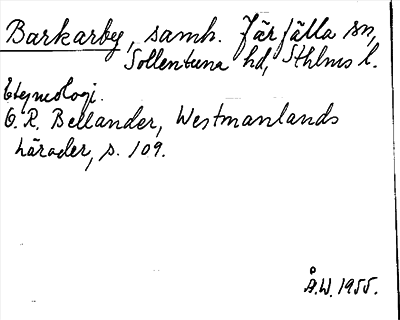 Barkarby, samh. Järfälla sn,
Sollentuna hd, Sthlms l.
Etymologi.
O.R. Bellander, Westmanlands
härader, s. 109.
Å.W. 1955.